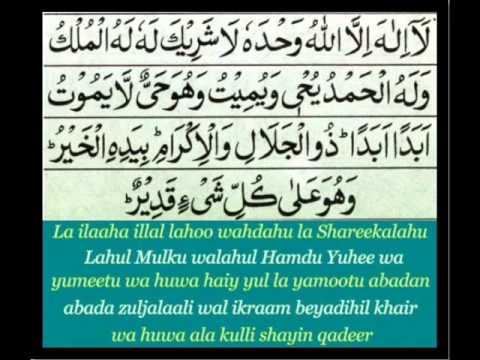 لَآ اِلٰهَ اِلَّا اللّٰهُ وَحْدَهٗ لَا شَرِيْكَ لَهٗ لَهُ الْمُلْكُ
وَلَهُ الْحَمْدُ يُحْيٖ وَيُمِيْتُ وَهُوَ حَيٌّ لَّا يَمُوْتُ
اَبَدًا اَبَدًا ؕ ذُو الْجَلَالِ وَالْاِكْرَامِ ؕ بِيَدِهِ الْخَيْرُ ؕ
وَهُوَ عَلٰى كُلِّ شَىْءٍ قَدِيْرٌ ؕ
La ilaaha illal lahoo wahdahu la Shareekalahu
Lahul Mulku walahul Hamdu Yuhee wa
yumeetu wa huwa haiy yul la yamootu abadan
abada zuljalaali wal ikraam beyadihil khair
wa huwa ala kulli shayin qadeer